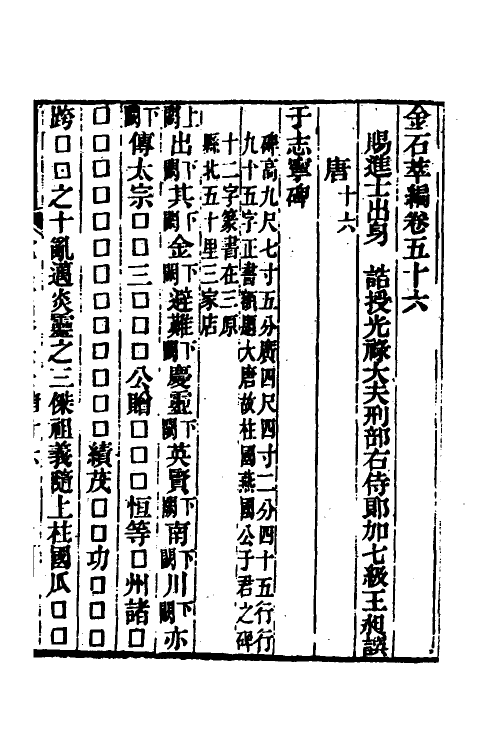 金石萃編卷五十六
賜進士出身　誥授光祿大夫刑部右侍郎加七級王昶譔
唐十六
于志寧碑
碑高九尺七寸五分廣四尺四寸二分四十五行行
九十五字正書額題大唐故柱國燕國公于君之碑
十二字篆書在三原
縣北五十里三家店
上闕出下闕其下闕金下闕避難下闕慶靈下闕英賢下闕南下闕川下闕亦
下闕傳太宗□□三□□□公贈□□□恒等□州諸□
□□□□□□□□□□□□□績茂□□功□□□
跨□□之十亂邁炎靈之三傑祖義隨上柱國瓜□□